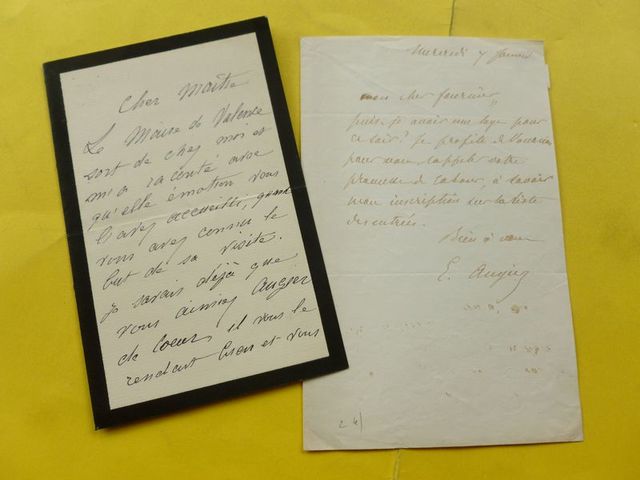 Cher Maître
Le Maire de Valence
sort de chez moi et
m'a raconté avec
qu'elle émotion vous
l'avez accueilli, quand
vous avez connu le
but de sa visite.
Je savais déjà que
vous aimiez Augier
de coeur il vous le
rendait bien et vous
Mercredi 7 Janvier
mon cher fournier,
puis je avoir une loge pour
ce soir? Je profite de l'occasion
pour vous rappeler votre
promesse de , à savoir
mon inscription sur la liste
des entrées.
Bien à vous
E. Augier
24/